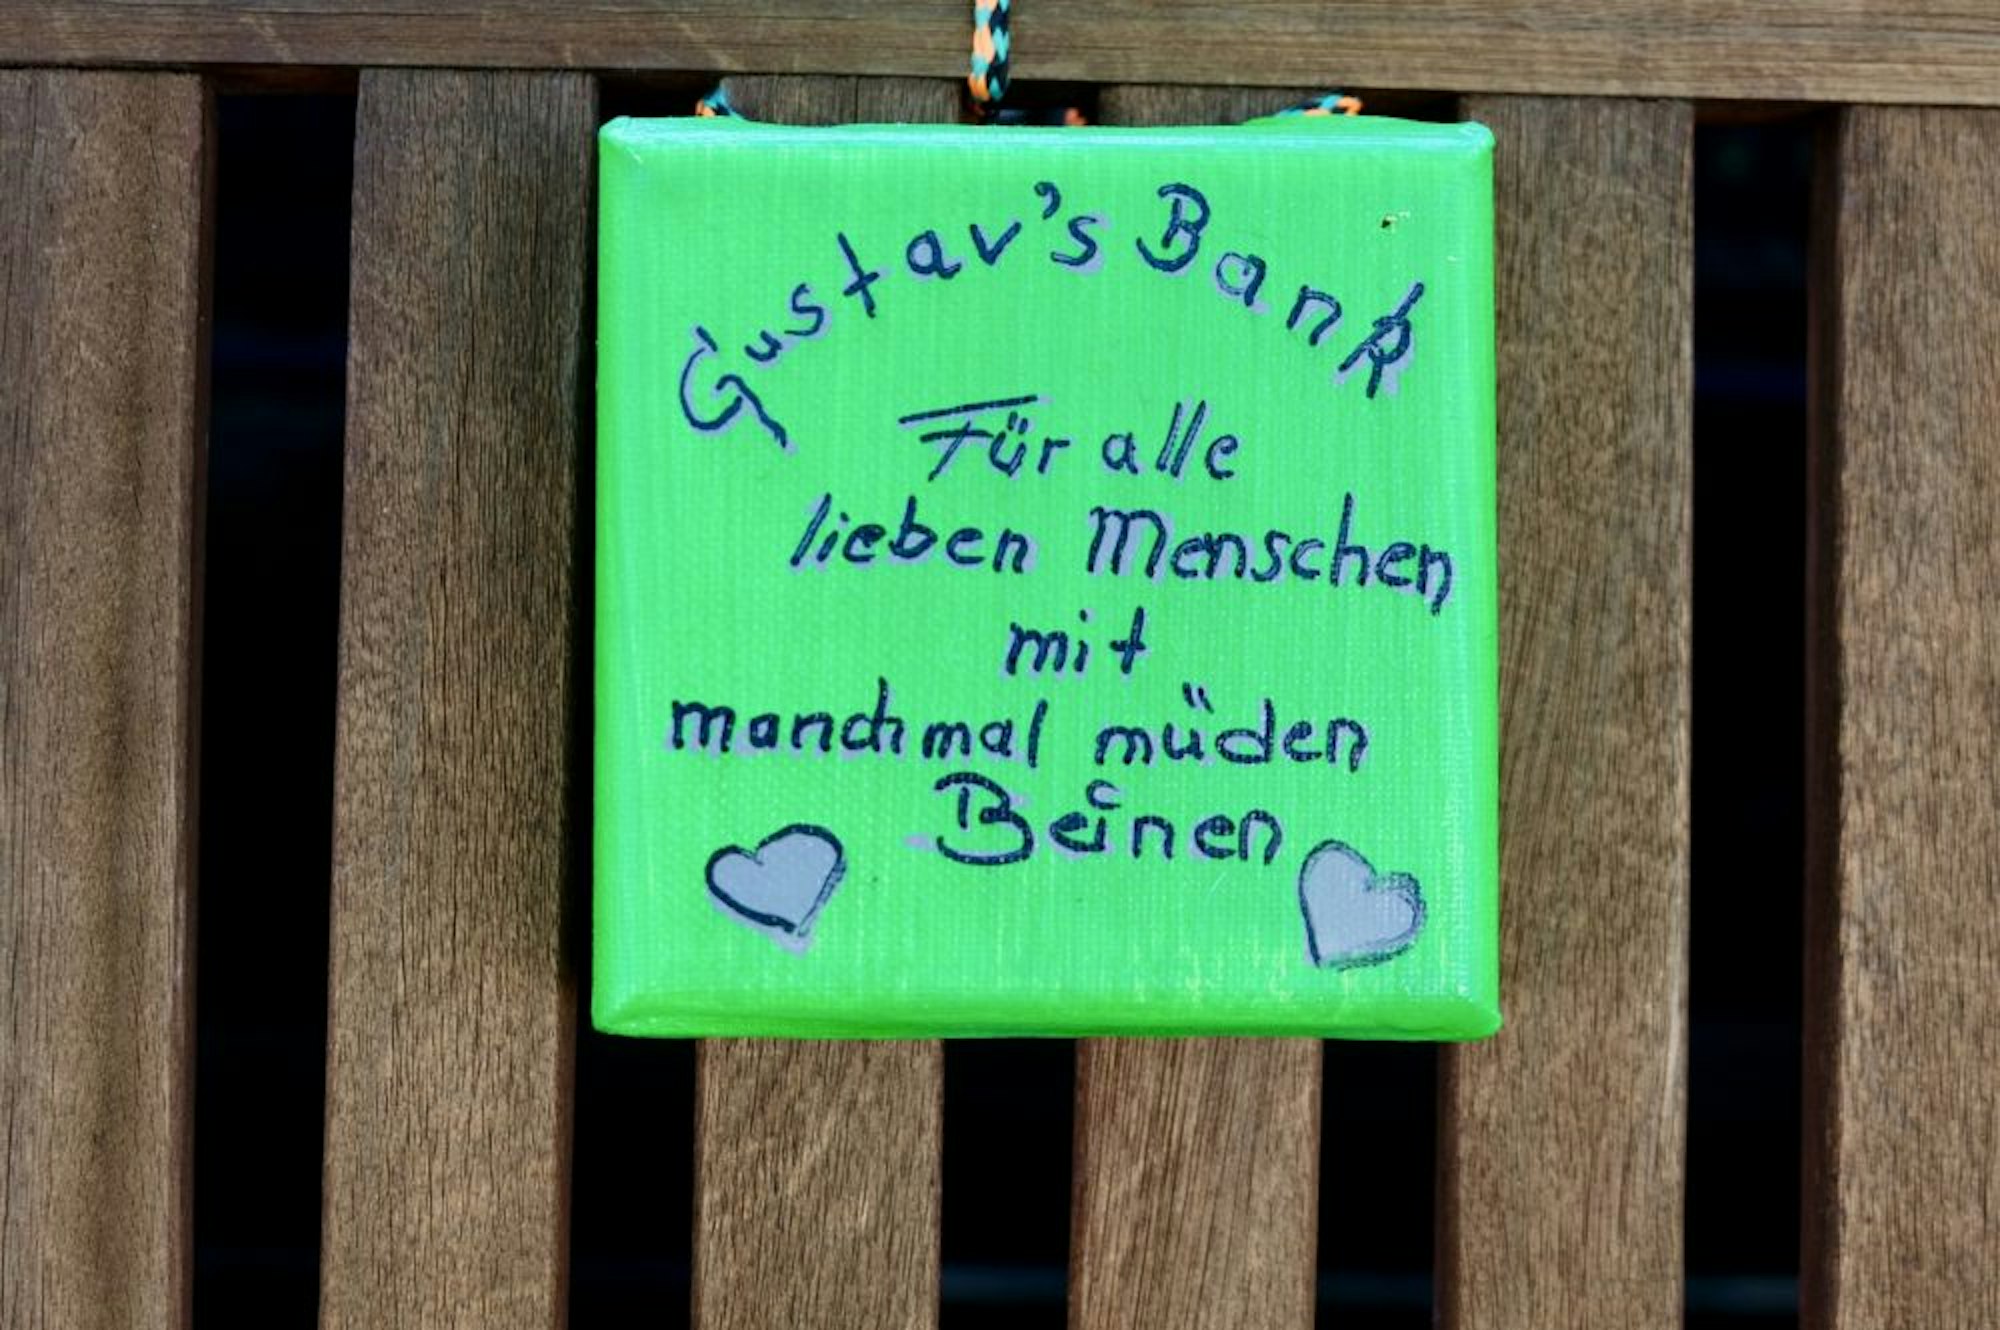 Gustav's Bank
Für alle
lieben Menschen
mit
manchmal müden
Beinen